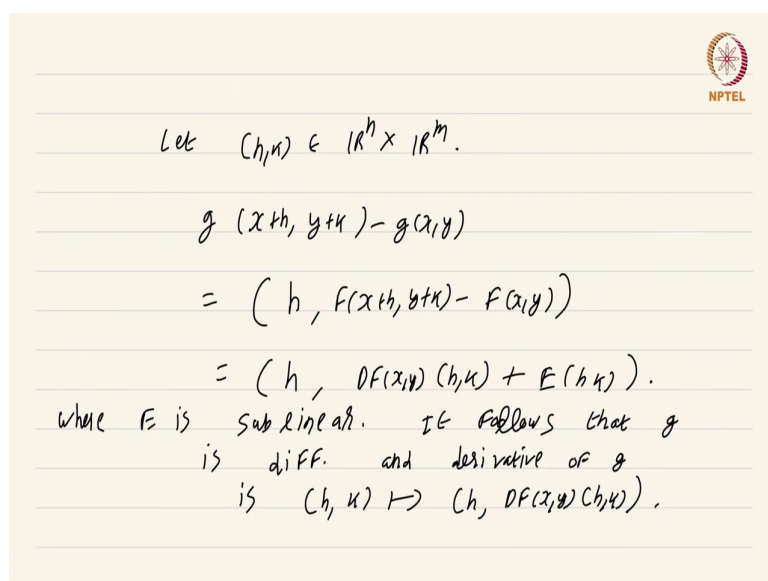 NPTEL
Let (h,k) ∈ ℝⁿ × ℝᵐ.
g (x+h, y+k) - g(x,y)
= (h, F(x+h, y+k) - F(x,y))
= (h, DF(x,y) (h,k) + E(h,k)).
where E is sublinear. It follows that g
is diff. and derivative of g
is (h, k) ↦ (h, DF(x,y)(h,k)).